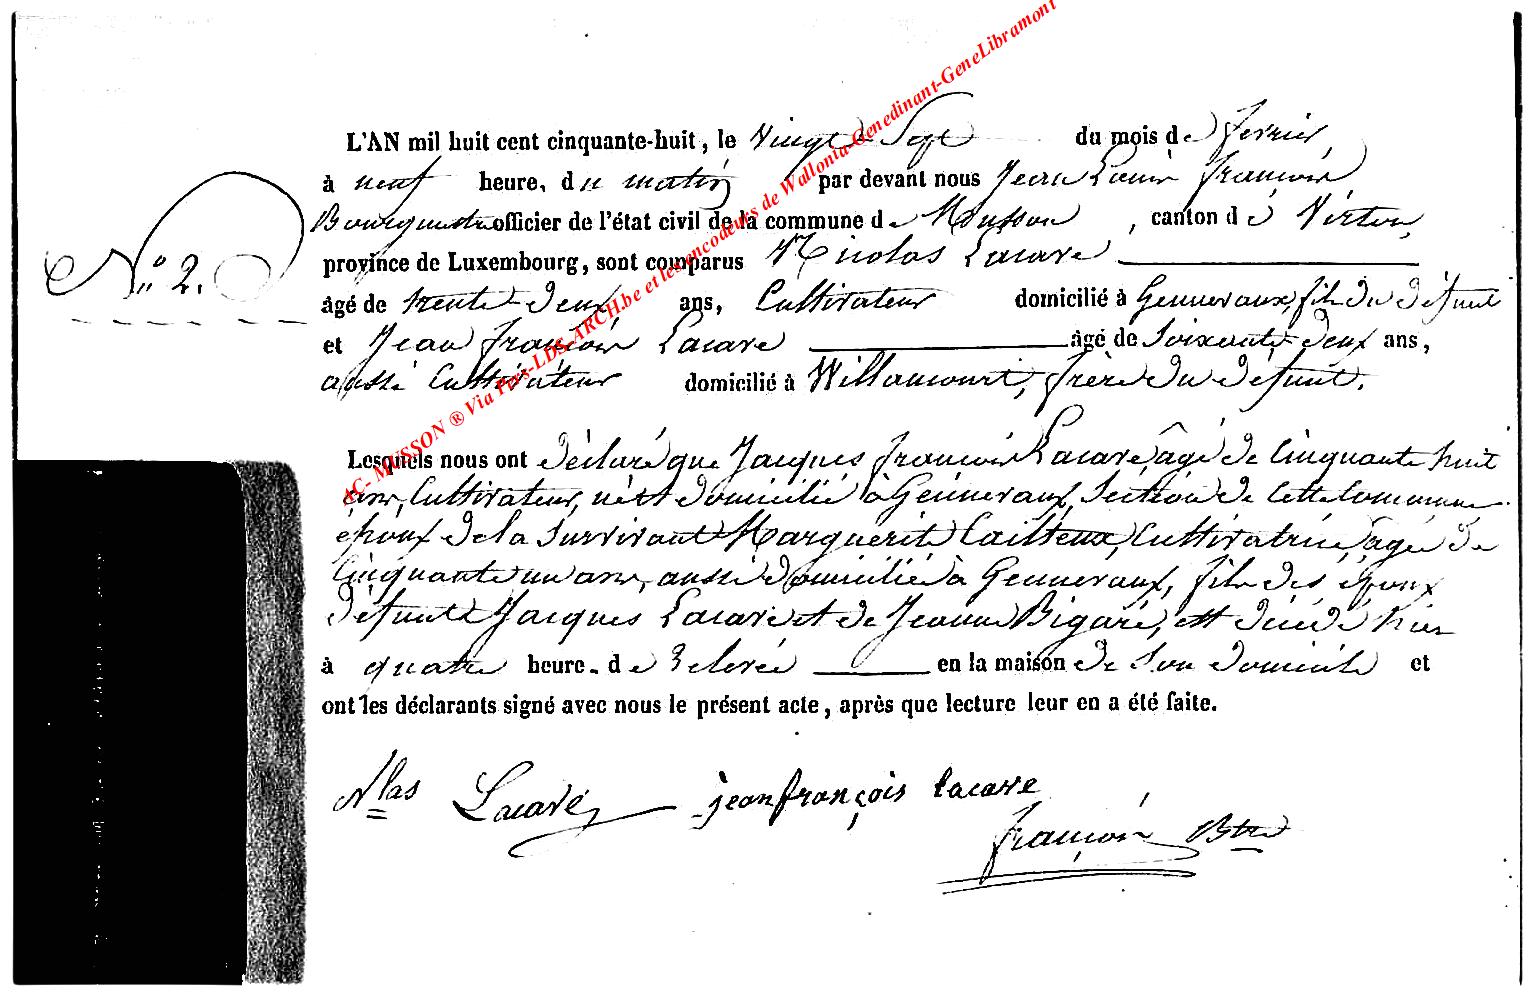 L'AN mil huit cent cinquante-huit, le Vingt Sept du mois de février
à neuf heure. du matin par devant nous Jean Louis François
Bourguestre officier de l'état civil de la commune de Musson, canton de Virton,
province de Luxembourg, sont comparus Nicolas Lacave
âgé de trente-deux ans, Cultivateur domicilié à Genneraux, fils du défunt
N.° 2.
et Jean François Lacave âgé de soixante-deux ans,
aussi Cultivateur domicilié à Willancourt, frère du défunt.
AC- MUSSON ® Via Pers-LDS-ARCH.be et les encodeurs de Wallonia-Genedinant-GeneLibramont
Lesquels nous ont déclaré que Jacques François Lacave âgé de cinquante huit
ans, Cultivateur, né et domicilié à Genneraux, Section de cette commune
époux de la survivante Marguerite Cailteux, Cultivatrice, âgée de
Cinquante un ans, aussi domiciliée à Genneraux, fils des époux
défunts Jacques Lacave et de Jeanne Bigaré, est décédé hier
à quatre heure. de relevée en la maison de son domicile et
ont les déclarants signé avec nous le présent acte, après que lecture leur en a été faite.
Nlas Lacave jean françois lacave
François Btre